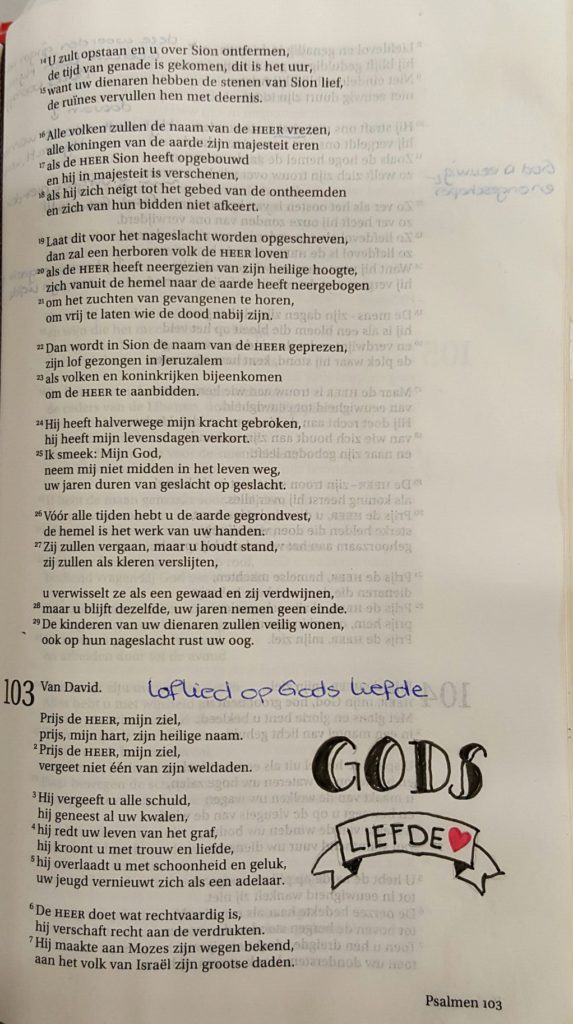 14 U zult opstaan en u over Sion ontfermen,
de tijd van genade is gekomen, dit is het uur,
15 want uw dienaren hebben de stenen van Sion lief,
de ruïnes vervullen hen met deernis.
16 Alle volken zullen de naam van de HEER vrezen,
alle koningen van de aarde zijn majesteit eren
17 als de HEER Sion heeft opgebouwd
en hij in majesteit is verschenen,
18 als hij zich neigt tot het gebed van de ontheemden
en zich van hun bidden niet afkeert.
19 Laat dit voor het nageslacht worden opgeschreven,
dan zal een herboren volk de HEER loven
20 als de HEER heeft neergezien van zijn heilige hoogte,
zich vanuit de hemel naar de aarde heeft neergebogen
21 om het zuchten van gevangenen te horen,
om vrij te laten wie de dood nabij zijn.
22 Dan wordt in Sion de naam van de HEER geprezen,
zijn lof gezongen in Jeruzalem
23 als volken en koninkrijken bijeenkomen
om de HEER te aanbidden.
24 Hij heeft halverwege mijn kracht gebroken,
hij heeft mijn levensdagen verkort.
25 Ik smeek: Mijn God,
neem mij niet midden in het leven weg,
uw jaren duren van geslacht op geslacht.
26 Vóór alle tijden hebt u de aarde gegrondvest,
de hemel is het werk van uw handen.
27 Zij zullen vergaan, maar u houdt stand,
zij zullen als kleren verslijten,
u verwisselt ze als een gewaad en zij verdwijnen,
28 maar u blijft dezelfde, uw jaren nemen geen einde.
29 De kinderen van uw dienaren zullen veilig wonen,
ook op hun nageslacht rust uw oog.
103 Van David. Loflied op Gods liefde
Prijs de HEER, mijn ziel,
prijs, mijn hart, zijn heilige naam.
2 Prijs de HEER, mijn ziel,
vergeet niet één van zijn weldaden.
3 Hij vergeeft u alle schuld,
hij geneest al uw kwalen,
4 hij redt uw leven van het graf,
hij kroont u met trouw en liefde,
5 hij overlaadt u met schoonheid en geluk,
uw jeugd vernieuwt zich als een adelaar.
GODS
LIEFDE
6 De HEER doet wat rechtvaardig is,
hij verschaft recht aan de verdrukten.
7 Hij maakte aan Mozes zijn wegen bekend,
aan het volk van Israël zijn grootse daden.
Psalmen 103